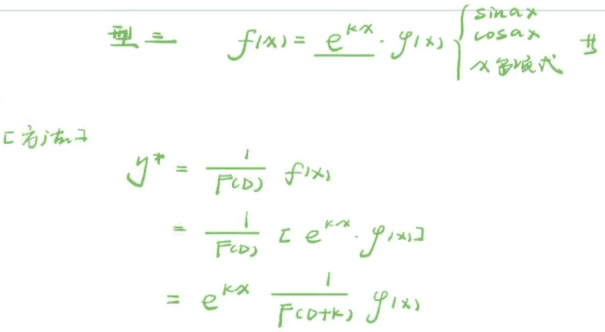 型三 f(x) = e^{kx} · φ(x) { sinax
cosax
x多项式
[方法]
y* = 1/F(D) f(x)
= 1/F(D) [e^{kx} · φ(x)]
= e^{kx} 1/F(D+k) φ(x)